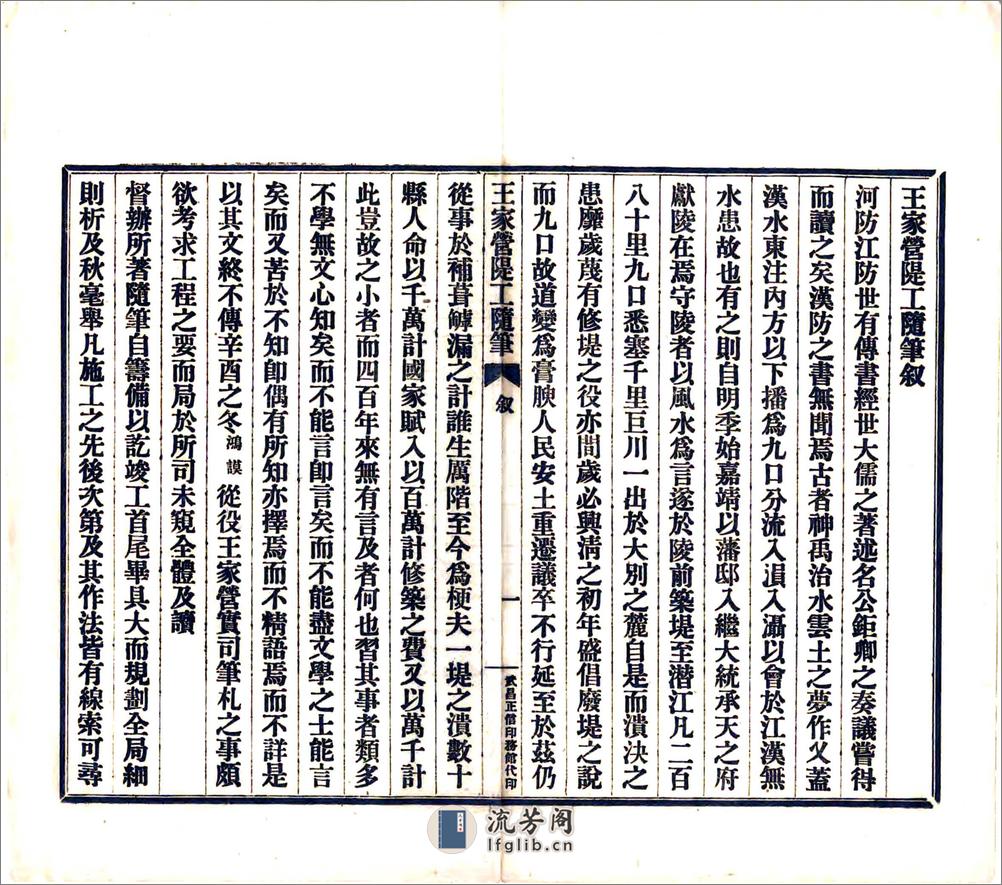 王家營隄工隨筆叙
河防江防世有傳書經世大儒之著述名公鉅卿之奏議嘗得
而讀之矣漢防之書無聞焉古者神禹治水雲土之夢作乂蓋
漢水東注內方以下播爲九口分流入溳入灄以會於江漢無
水患故也有之則自明季始嘉靖以藩邸入繼大統承天之府
獻陵在焉守陵者以風水爲言遂於陵前築堤至潛江凡二百
八十里九口悉塞千里巨川一出於大别之麓自是而潰決之
患靡歲蔑有修堤之役亦間歲必興淸之初年盛倡廢堤之說
而九口故道變爲膏腴人民安土重遷議卒不行延至於茲仍
王家營隄工隨筆 叙 一 武昌正信印務館代印
從事於補葺罅漏之計誰生厲階至今爲梗夫一堤之潰數十
縣人命以千萬計國家賦入以百萬計修築之費又以萬千計
此豈故之小者而四百年來無有言及者何也習其事者類多
不學無文心知矣而不能言卽言矣而不能盡文學之士能言
矣而又苦於不知卽偶有所知亦擇焉而不精語焉而不詳是
以其文終不傳辛酉之冬鴻謨從役王家營實司筆札之事頗
欲考求工程之要而局於所司未窺全體及讀
督辦所著隨筆自籌備以訖竣工首尾畢具大而規劃全局細
則析及秋毫舉凡施工之先後次第及其作法皆有線索可尋
流芳阁
lfglib.cn